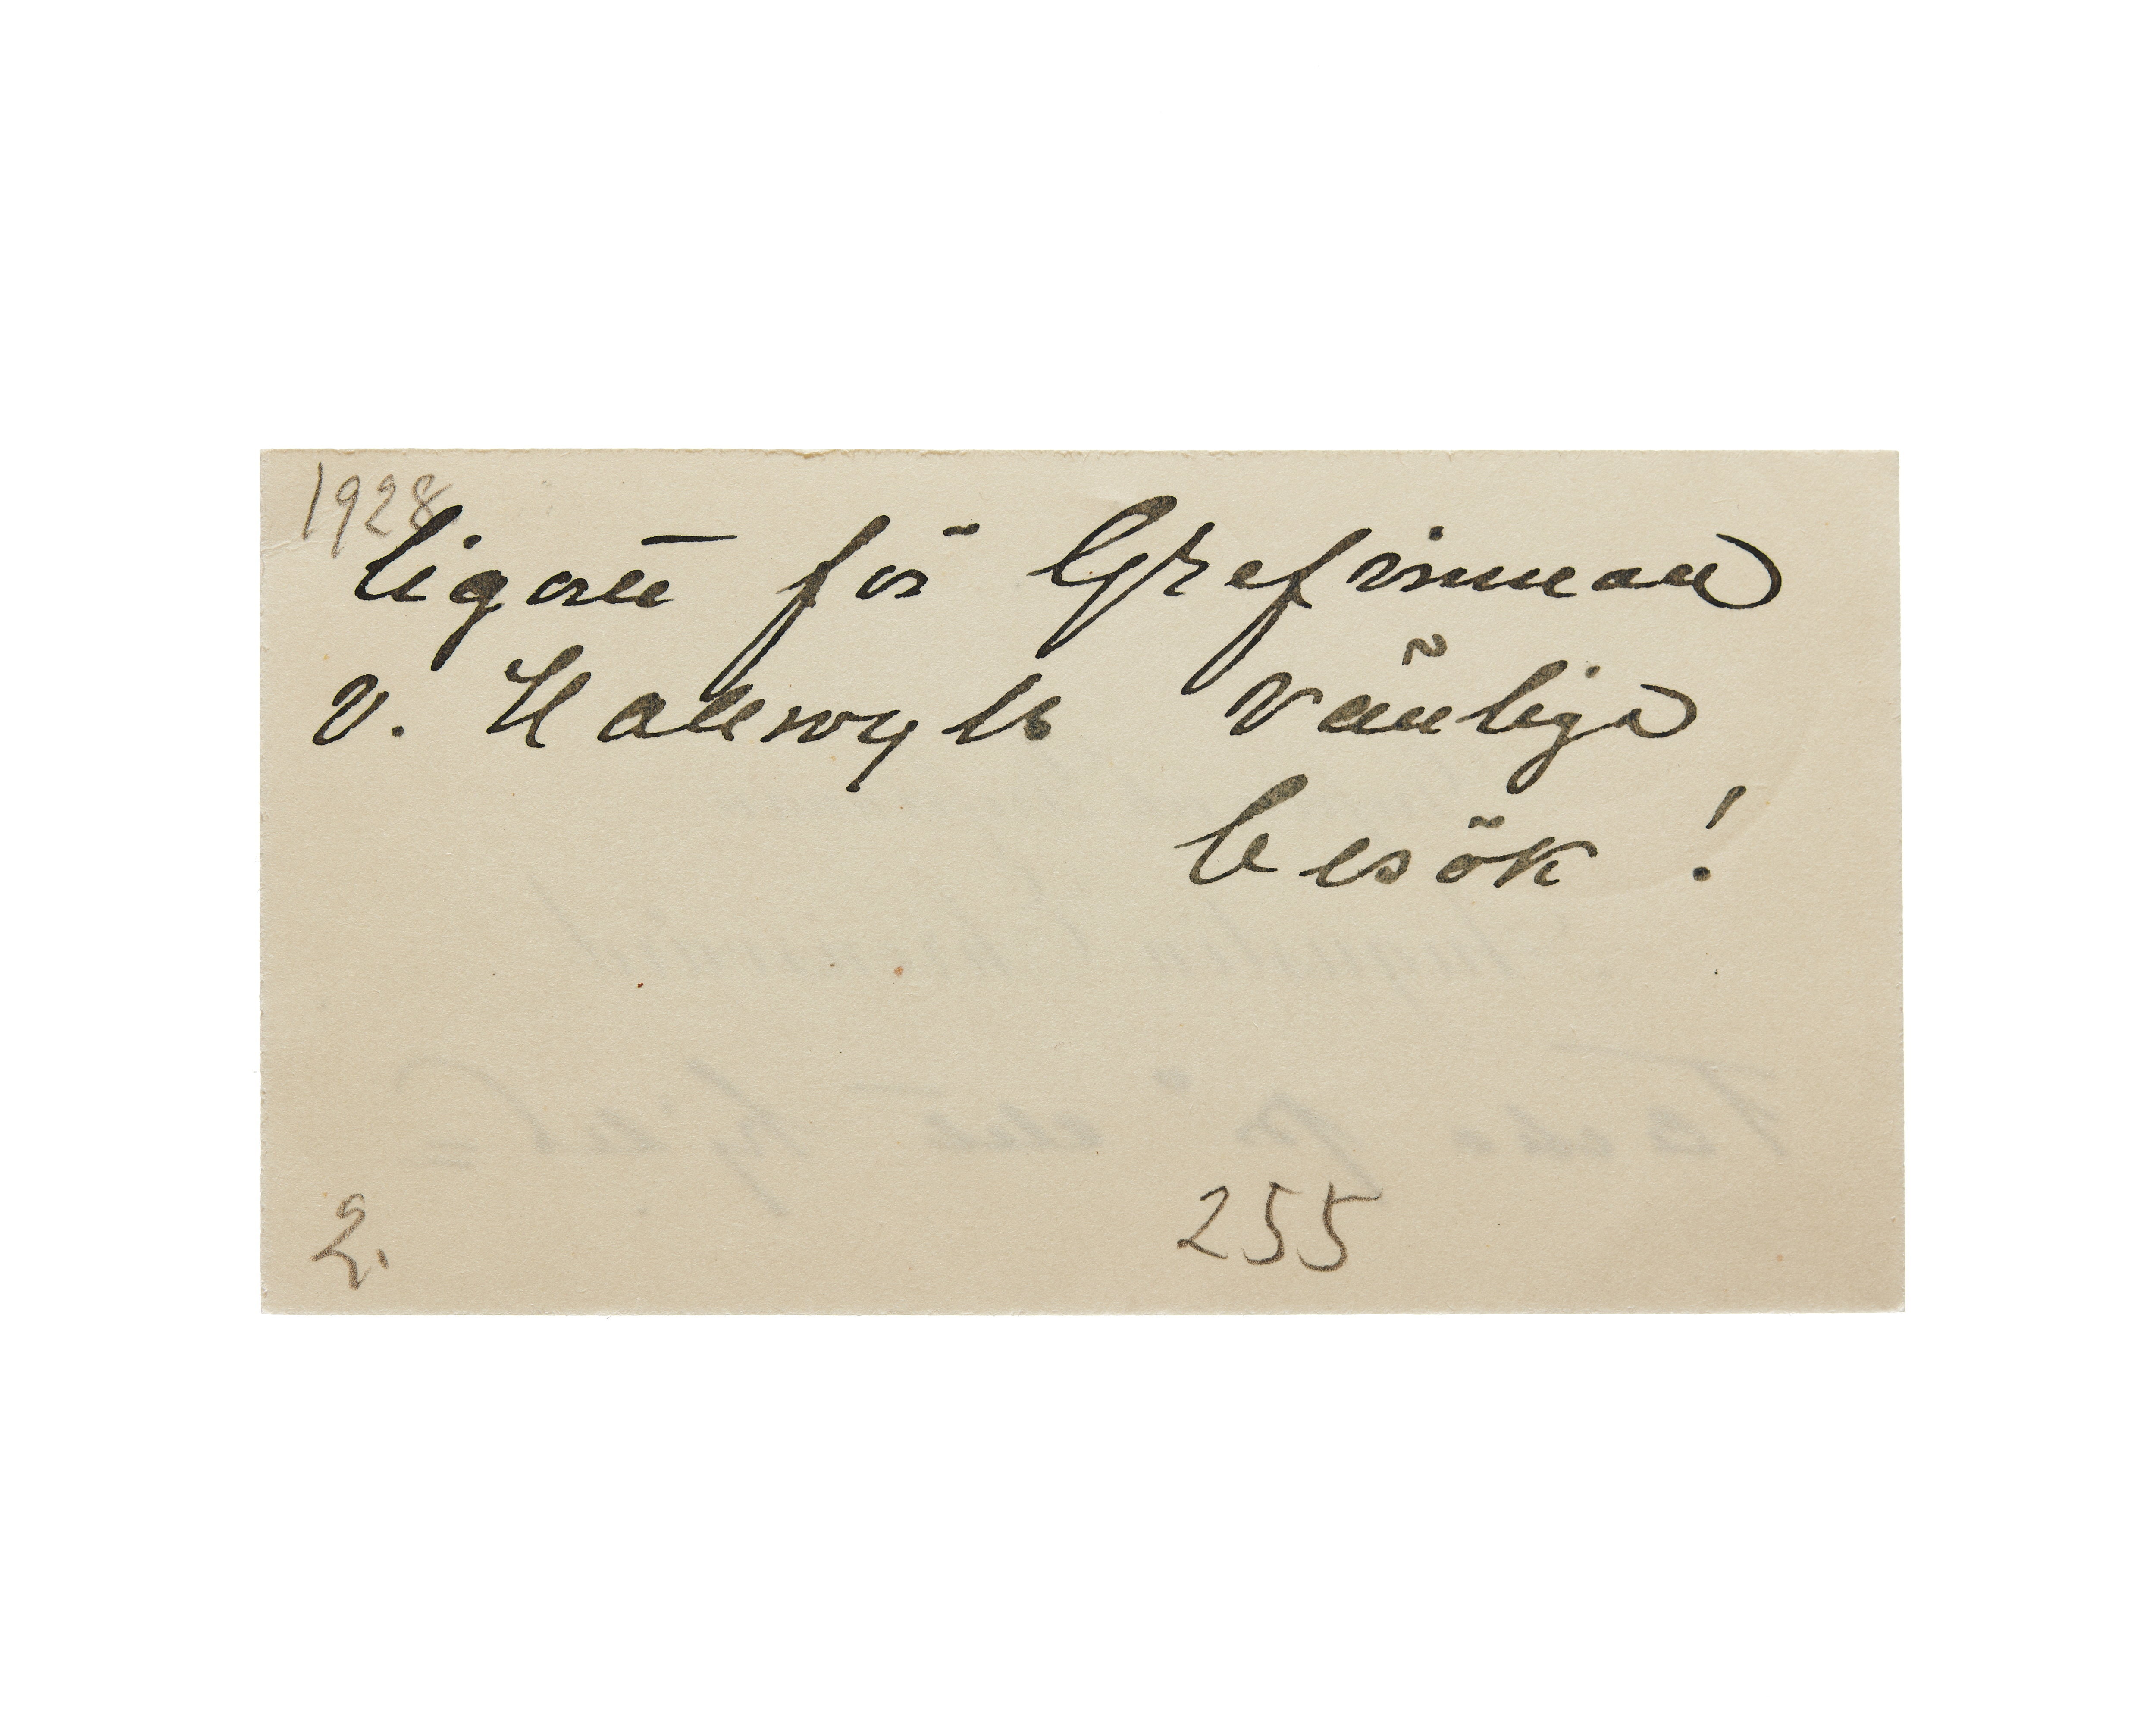 1928
ligast för Grefvinnan
v. Hallwyls vänliga
besök!
2.
255